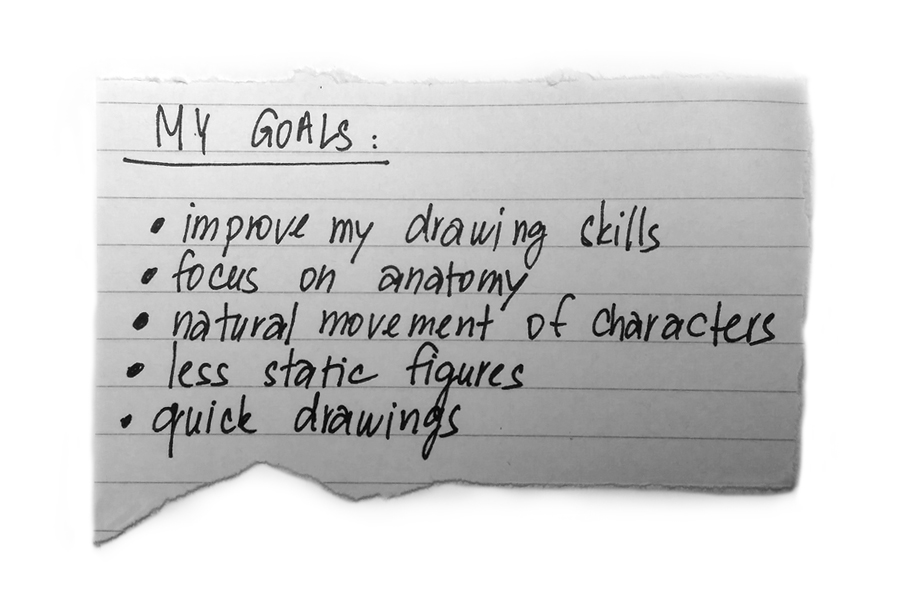 MY GOALS:
• improve my drawing skills
• focus on anatomy
• natural movement of characters
• less static figures
• quick drawings